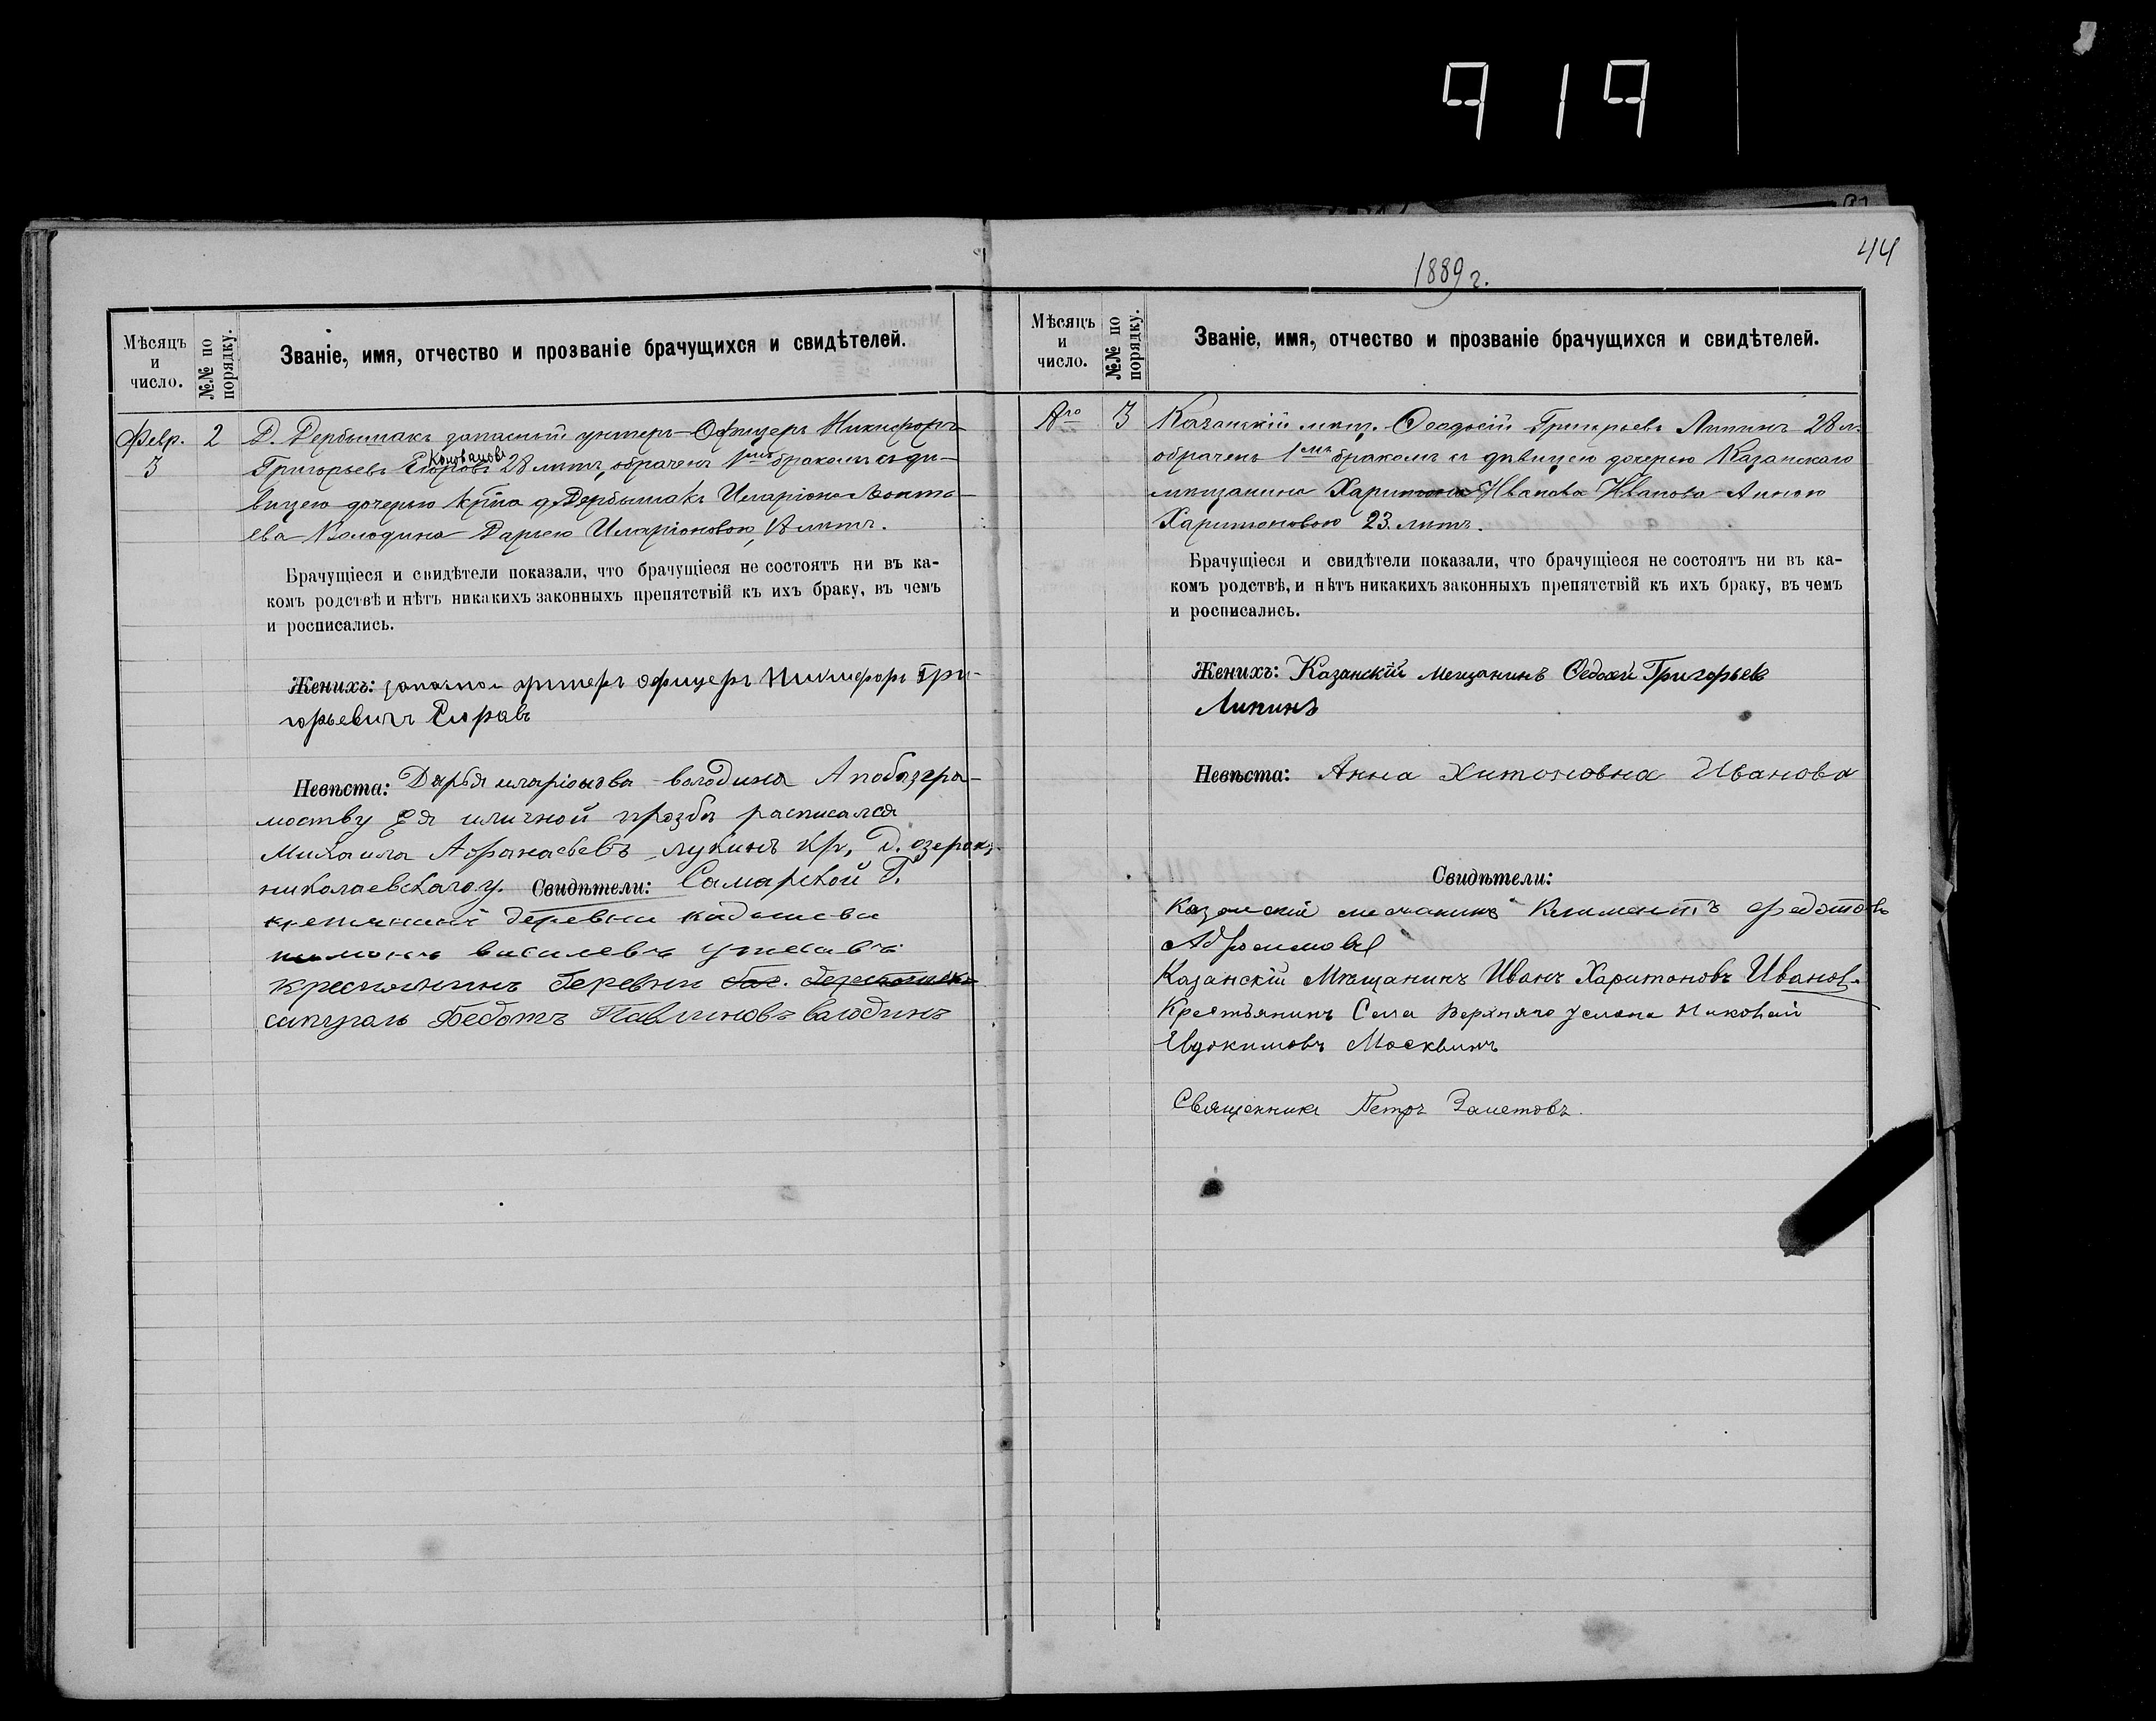 919
44
1889 г.
Мѣсяцъ
и
число.
№№ по
порядку.
Званіе, имя, отчество и прозваніе брачущихся и свидѣтелей.
Февр.
3
2
Д. Дербышакъ запасный унтеръ-Офицеръ Никифоръ
Конованов
Григорьевъ Сюровъ 28 лѣтъ, обрачен 1мъ бракомъ съ дѣ-
вицею дочерью кр-на д. Дербышакъ Иларіона
ева Володина Дарьею Иларіоновою, лѣтъ.
Брачущіеся и свидѣтели показали, что брачущіеся не состоятъ ни въ ка-
комъ родствѣ и нѣтъ никакихъ законныхъ препятствій къ ихъ браку, въ чемъ
и росписались.
Женихъ: унтеръ офицеръ Никифоръ Гри-
горьевичъ Сюровъ
Невѣста: Дарья иларіонова володина А побезгра-
моству Ея иличной прозбѣ расписался
Михаила Афанасьевъ лукинъ кр. д. озерокъ
николаевскаго у. Самарской Г.
Свидѣтели:
деревни
василевъ
кресьянинъ деревни
Федотъ Павлиновъ валодинъ
Мѣсяцъ
и
число.
№№ по
порядку.
Званіе, имя, отчество и прозваніе брачущихся и свидѣтелей.
3
Казанскій мѣщ. Ѳеодосій Григорьевъ Липинъ 28 л.
обрачен 1мъ бракомъ съ дѣвицею дочерью Казанскаго
мѣщанина Харитона Иванова Иванова Анною
Харитоновою 23 лѣтъ.
Брачущіеся и свидѣтели показали, что брачущіеся не состоятъ ни въ ка-
комъ родствѣ, и нѣтъ никакихъ законныхъ препятствій къ ихъ браку, въ чемъ
и росписались.
Женихъ: Казанскій мещанинъ Ѳедосй Григорьевъ
Липинъ
Невѣста: Анна Хитоновна Иванова
Свидѣтели:
Казанскій Климентъ федотовъ
Казанскій Мѣщанинъ Иванъ Харитоновъ Иванов.
Крестьянинъ Села Верхняго Услона Николай
Евдокимовъ Москвинъ
Священникъ Петръ Заметовъ.